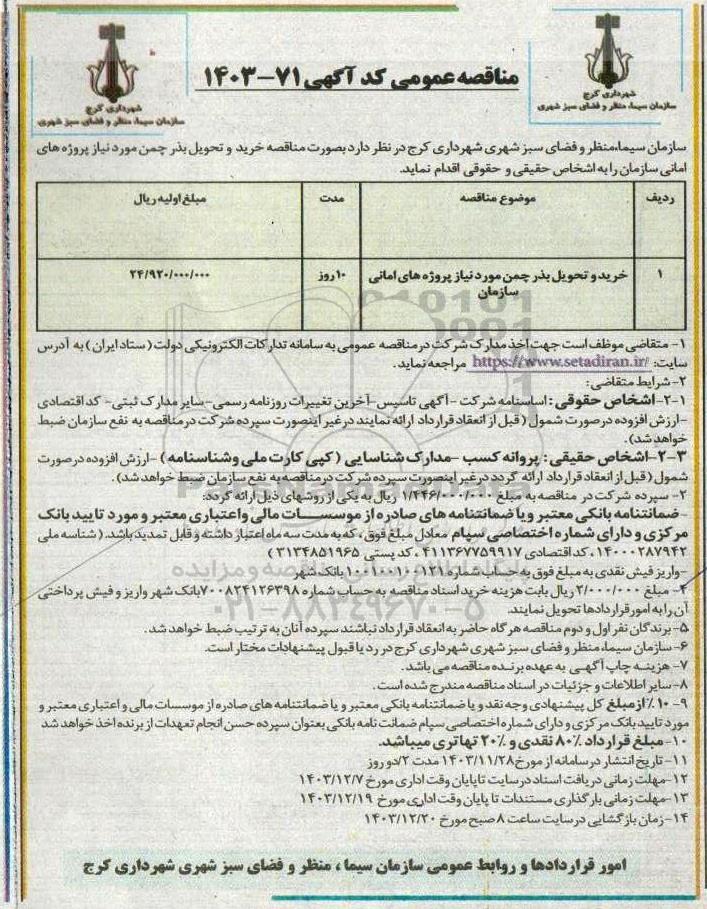 مناقصه عمومی کد آگهی ۷۱-۱۴۰۳
شهرداری کرج
سازمان سیما، منظر و فضای سبز شهری
شهرداری کرج
سازمان سیما، منظر و فضای سبز شهری
سازمان سیما،منظر و فضای سبز شهری شهرداری کرج در نظر دارد بصورت مناقصه خرید و تحویل بذر چمن مورد نیاز پروژه های
امانی سازمان را به اشخاص حقیقی و حقوقی اقدام نماید.
ردیف موضوع مناقصه مدت مبلغ اولیه ریال
۱ خرید و تحویل بذر چمن مورد نیاز پروژه های امانی ۱۰ روز ۲۴/۹۲۰/۰۰۰/۰۰۰
سازمان
۱- متقاضی موظف است جهت اخذ مدارک شرکت در مناقصه عمومی به سامانه تدارکات الکترونیکی دولت ( ستاد ایران ) به آدرس
سایت: https://www.setadiran.ir/ مراجعه نماید.
۲-شرایط متقاضی:
۲-۱-اشخاص حقوقی : اساسنامه شرکت -آگهی تاسیس-آخرین تغییرات روزنامه رسمی-سایر مدارک ثبتی- کد اقتصادی
-ارزش افزوده در صورت شمول ( قبل از انعقاد قرارداد ارائه نمایند در غیر اینصورت سپرده شرکت در مناقصه به نفع سازمان ضبط
خواهد شد).
۲-۳-اشخاص حقیقی : پروانه کسب -مدارک شناسایی ( کپی کارت ملی و شناسنامه ) -ارزش افزوده در صورت
شمول ( قبل از انعقاد قرارداد ارائه گردد در غیر اینصورت سپرده شرکت در مناقصه به نفع سازمان ضبط خواهد شد).
۲- سپرده شرکت در مناقصه به مبلغ ۱/۲۴۶/۰۰۰/۰۰۰ ریال به یکی از روشهای ذیل ارائه گردد:
-ضمانتنامه بانکی معتبر و یا ضمانتنامه های صادره از موسسات مالی و اعتباری معتبر و مورد تایید بانک
مرکزی و دارای شماره اختصاصی سپام معادل مبلغ فوق ، که به مدت سه ماه اعتبار داشته و قابل تمدید باشد. ( شناسه ملی
۱۴۰۰۰۲۸۷۹۴۲ ، کد اقتصادی ۴۱۱۳۶۷۷۵۹۹۱۷ ، کد پستی ۳۱۳۴۸۵۱۹۶۵ )
-واریز فیش نقدی به مبلغ فوق به حساب شماره ۱۰۰۱۰۰۱۰۰۱۲۱ بانک شهر
۴- مبلغ ۲/۰۰۰/۰۰۰ ریال بابت هزینه خرید اسناد مناقصه به حساب شماره ۷۰۰۸۲۴۱۲۶۳۹۸ بانک شهر واریز و فیش پرداختی
آن را به امور قراردادها تحویل نمایند.
۵-برندگان نفر اول و دوم مناقصه هر گاه حاضر به انعقاد قرارداد نباشند سپرده آنان به ترتیب ضبط خواهد شد.
۶-سازمان سیما، منظر و فضای سبز شهری شهرداری کرج در رد یا قبول پیشنهادات مختار است.
۷- هزینه چاپ آگهی به عهده برنده مناقصه می باشد.
۸-سایر اطلاعات و جزئیات در اسناد مناقصه مندرج شده است.
۹- ۱۰٪ از مبلغ کل پیشنهادی وجه نقد و یا ضمانتنامه بانکی معتبر و یا ضمانتنامه های صادره از موسسات مالی و اعتباری معتبر و
مورد تایید بانک مرکزی و دارای شماره اختصاصی سپام ضمانت نامه بانکی بعنوان سپرده حسن انجام تعهدات از برنده اخذ خواهد شد
۱۰-مبلغ قرارداد ۸۰٪ نقدی و ۲۰٪ تهاتری میباشد.
۱۱- تاریخ انتشار در سامانه از مورخ ۱۴۰۳/۱۱/۲۸ مدت ۲/دو روز
۱۲-مهلت زمانی دریافت اسناد در سایت تا پایان وقت اداری مورخ ۱۴۰۳/۱۲/۷
۱۳-مهلت زمانی بارگذاری مستندات تا پایان وقت اداری مورخ ۱۴۰۳/۱۲/۱۹
۱۴-زمان بازگشایی در سایت ساعت ۸ صبح مورخ ۱۴۰۳/۱۲/۲۰
امور قراردادها و روابط عمومی سازمان سیما ، منظر و فضای سبز شهری شهرداری کرج